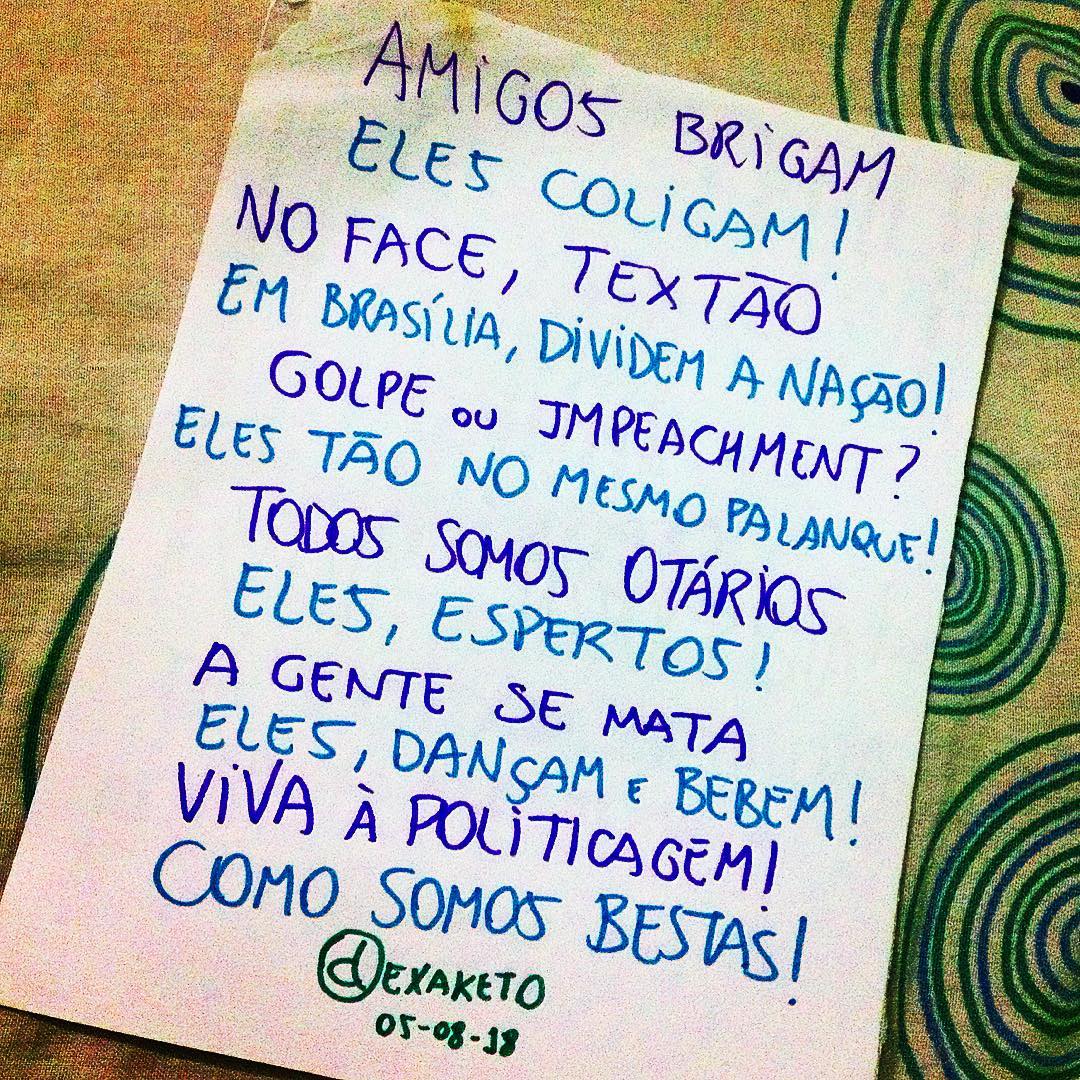 AMIGOS BRIGAM
ELES COLIGAM!
NO FACE, TEXTÃO
EM BRASÍLIA, DIVIDEM A NAÇÃO!
GOLPE OU IMPEACHMENT?
ELES TÃO NO MESMO PALANQUE!
TODOS SOMOS OTÁRIOS
ELES, ESPERTOS!
A GENTE SE MATA
ELES, DANÇAM E BEBEM!
VIVA À POLITICAGEM!
COMO SOMOS BESTAS!
dEXAKETO
05-08-18